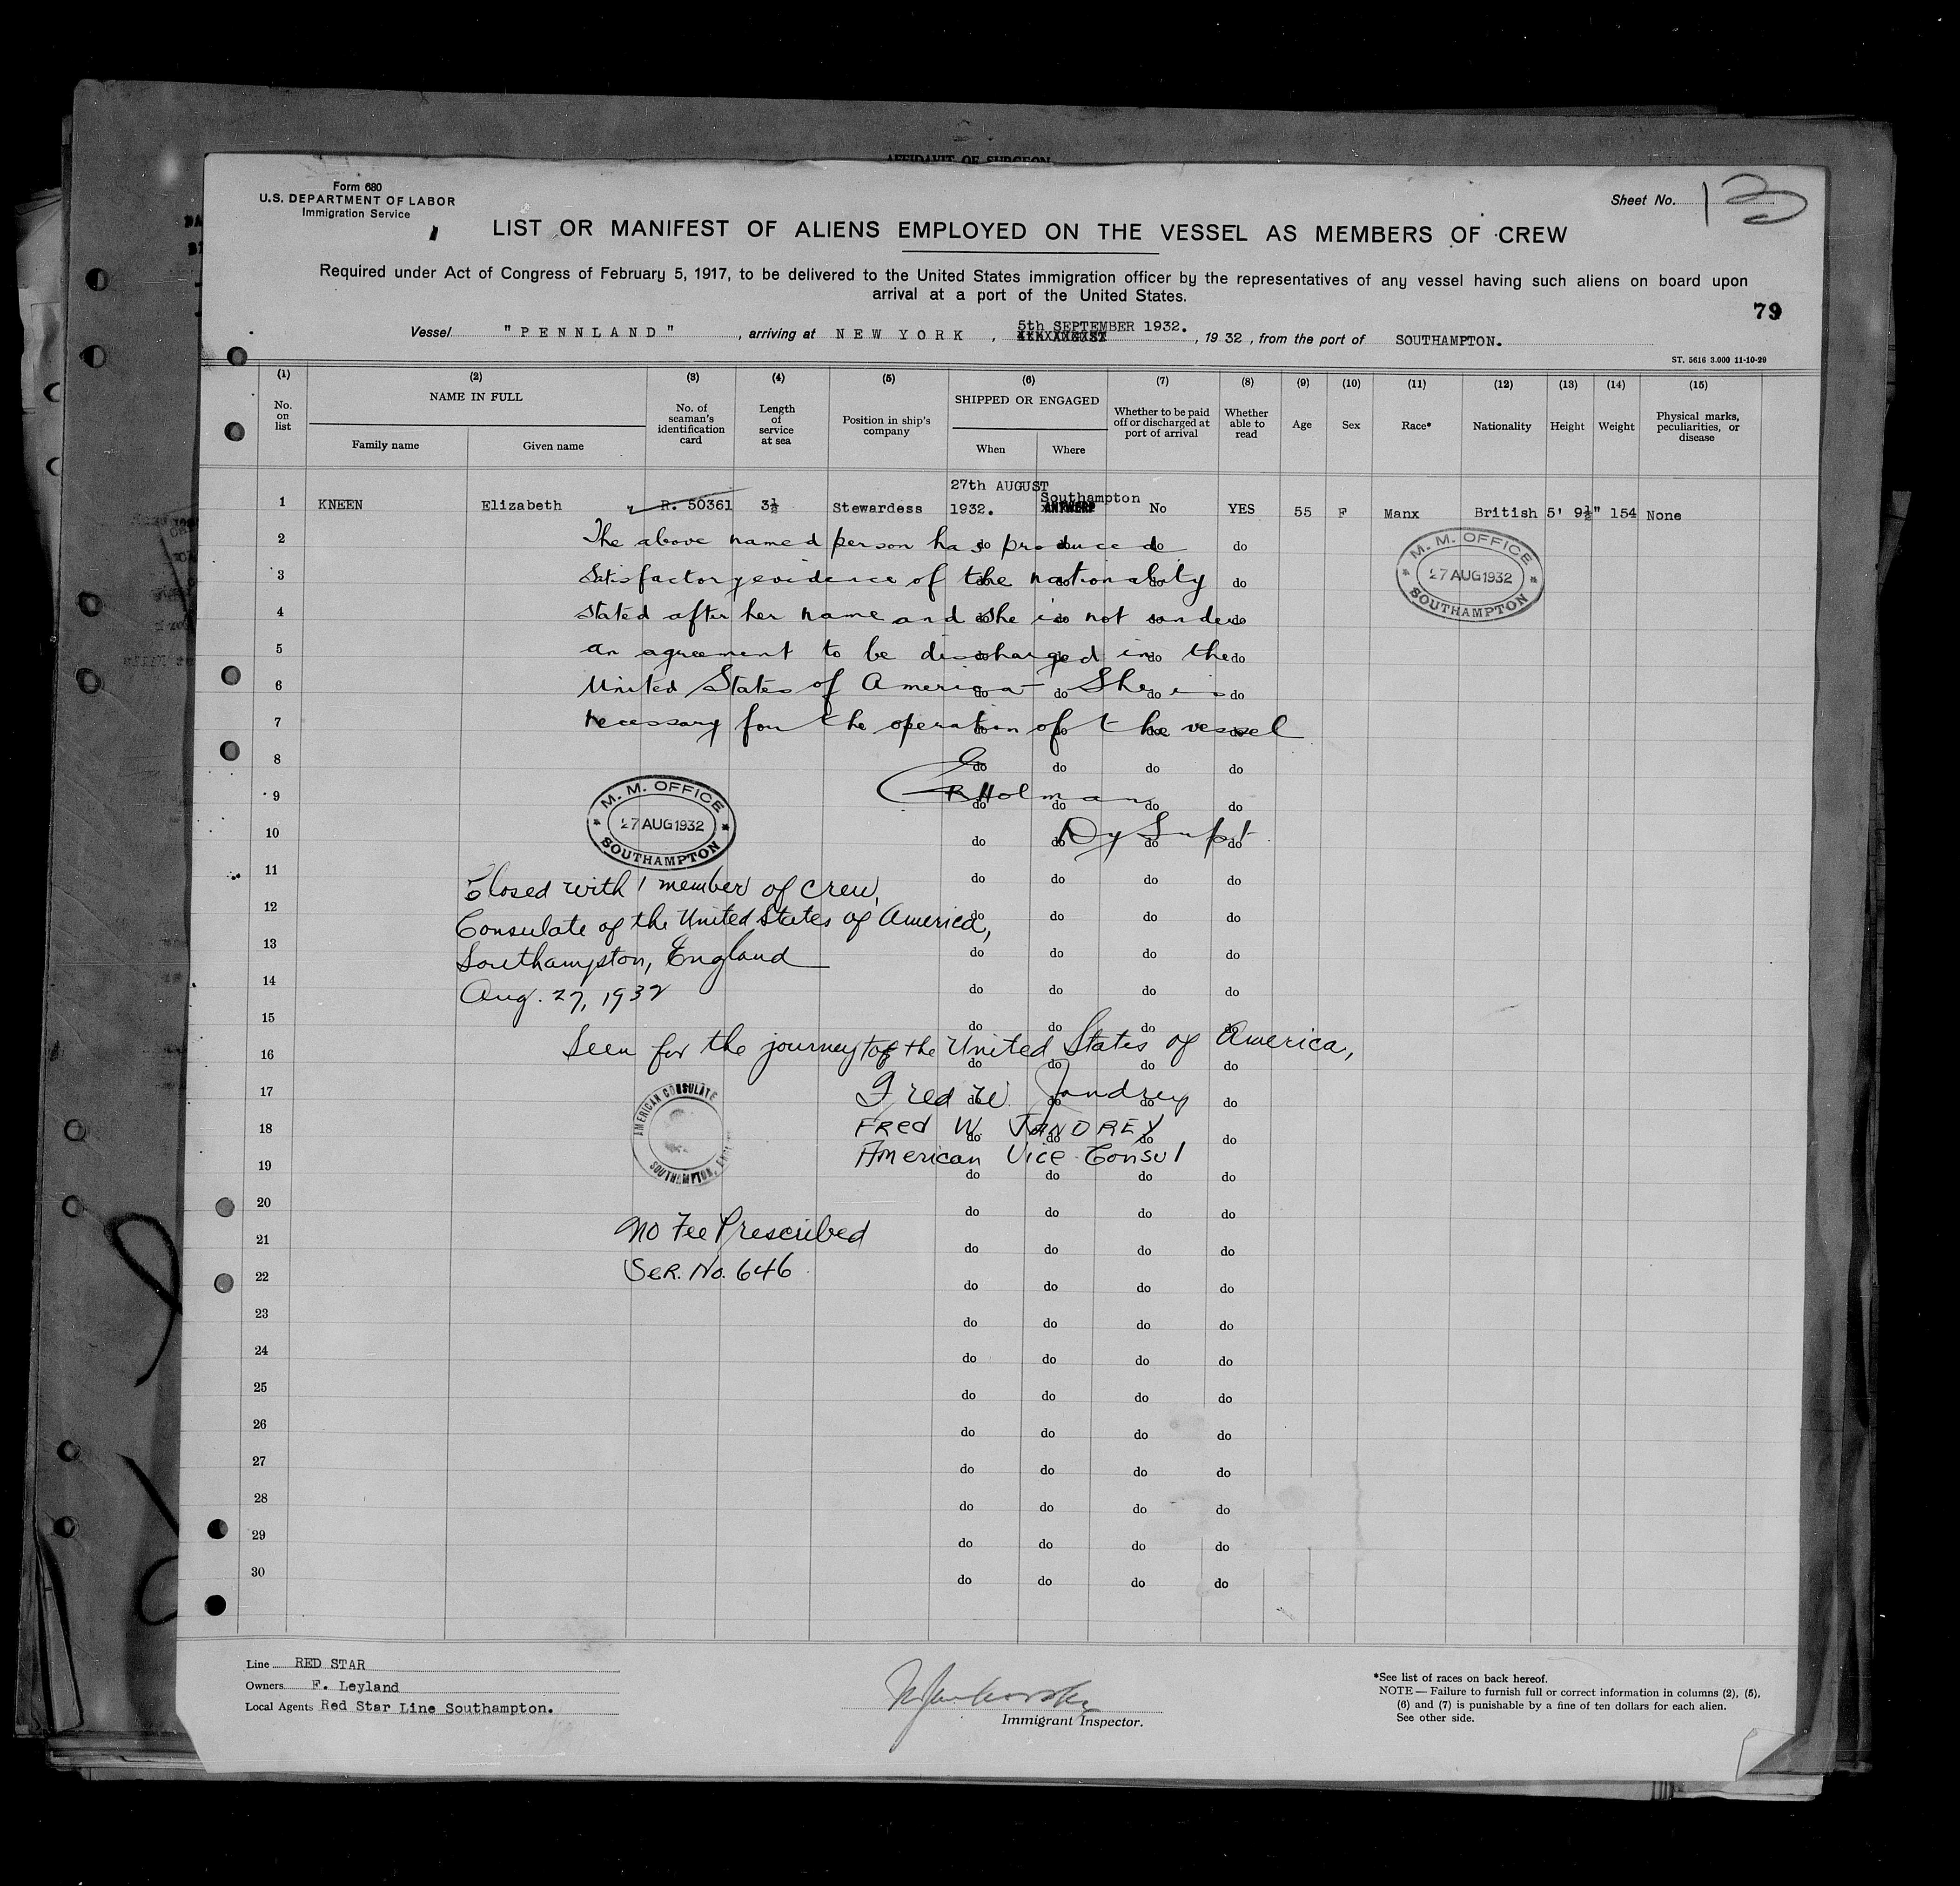 AFFIDAVIT OF SURGEON
Form 680
U.S. DEPARTMENT OF LABOR
Immigration Service
Sheet No.
LIST OR MANIFEST OF ALIENS EMPLOYED ON THE VESSEL AS MEMBERS OF CREW
Required under Act of Congress of February 5, 1917, to be delivered to the United States immigration officer by the representatives of any vessel having such aliens on board upon
arrival at a port of the United States.
79
Vessel "PENNLAND", arriving at NEW YORK, 5th SEPTEMBER 1932., 1932, from the port of SOUTHAMPTON.
ST. 5616 3.000 11-10-29
(1) (2) (3) (4) (5) (6) (7) (8) (9) (10) (11) (12) (13) (14) (15)
No. on list
NAME IN FULL
Family name
Given name
No. of seaman's identification card
Length of service at sea
Position in ship's company
SHIPPED OR ENGAGED
When
Where
Whether to be paid off or discharged at port of arrival
Whether able to read
Age
Sex
Race*
Nationality
Height
Weight
Physical marks, peculiarities, or disease
1 KNEEN Elizabeth R. 50361 3½ Stewardess 27th AUGUST 1932. Southampton ANTWERP No YES 55 F Manx British 5' 9½" 154 None
2 The above named person has produced do do do do
3 satisfactory evidence of the nationality do do do do
4 stated after her name and she is not under do do do do
5 an agreement to be discharged in the do do do do
6 United States of America She is do do do do
7 necessary for the operation of the vessel do do do do
M. M. OFFICE
27 AUG 1932
SOUTHAMPTON
8 do do do do
9 Holman do do do do
10 Dy Supt do do do do
M. M. OFFICE
27 AUG 1932
SOUTHAMPTON
11 Closed with 1 member of crew, do do do do
12 Consulate of the United States of America, do do do do
13 Southampton, England do do do do
14 Aug. 27, 1932 do do do do
15 do do do do
16 Seen for the journey to the United States of America, do do do do
17 Fred W. Jandrey do do do do
18 FRED W. JANDREY do do do do
19 American Vice Consul do do do do
AMERICAN CONSULATE
SOUTHAMPTON,
20 do do do do
21 No Fee Prescribed do do do do
22 Ser. No. 646 do do do do
23 do do do do
24 do do do do
25 do do do do
26 do do do do
27 do do do do
28 do do do do
29 do do do do
30 do do do do
Line RED STAR
Owners F. Leyland
Local Agents Red Star Line Southampton.
Immigrant Inspector.
*See list of races on back hereof.
NOTE — Failure to furnish full or correct information in columns (2), (5),
(6) and (7) is punishable by a fine of ten dollars for each alien.
See other side.